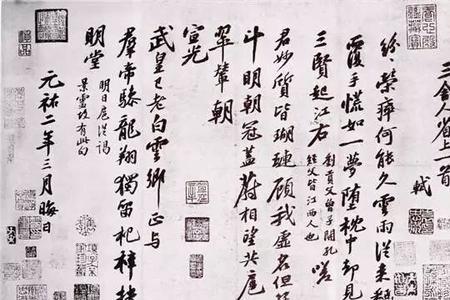 三舍人省上一首
軾
紛榮瘁何能久雲雨從來翻
覆手慌如一夢墮枕中却見
三賢起江右
劉貢父曾子開孔
經父皆江西人也
嗟
君妙質皆瑚璉顧我虛名但箕
斗明朝冠蓋蔚相望共扈
翠輦朝
宣光
武皇已老白雲鄉正与
羣帝驂龍翔獨留杞梓扶
明堂
明日扈從謁
景靈故有此句
元祐二年三月晦日